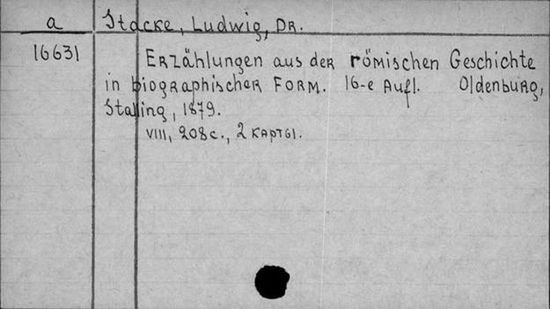 a Stacke, Ludwig, Dr.
16631 Erzählungen aus der römischen Geschichte
in biographischer Form. 16-e Aufl. Oldenburg,
Stalling, 1879.
VIII, 208 с., 2 карты.